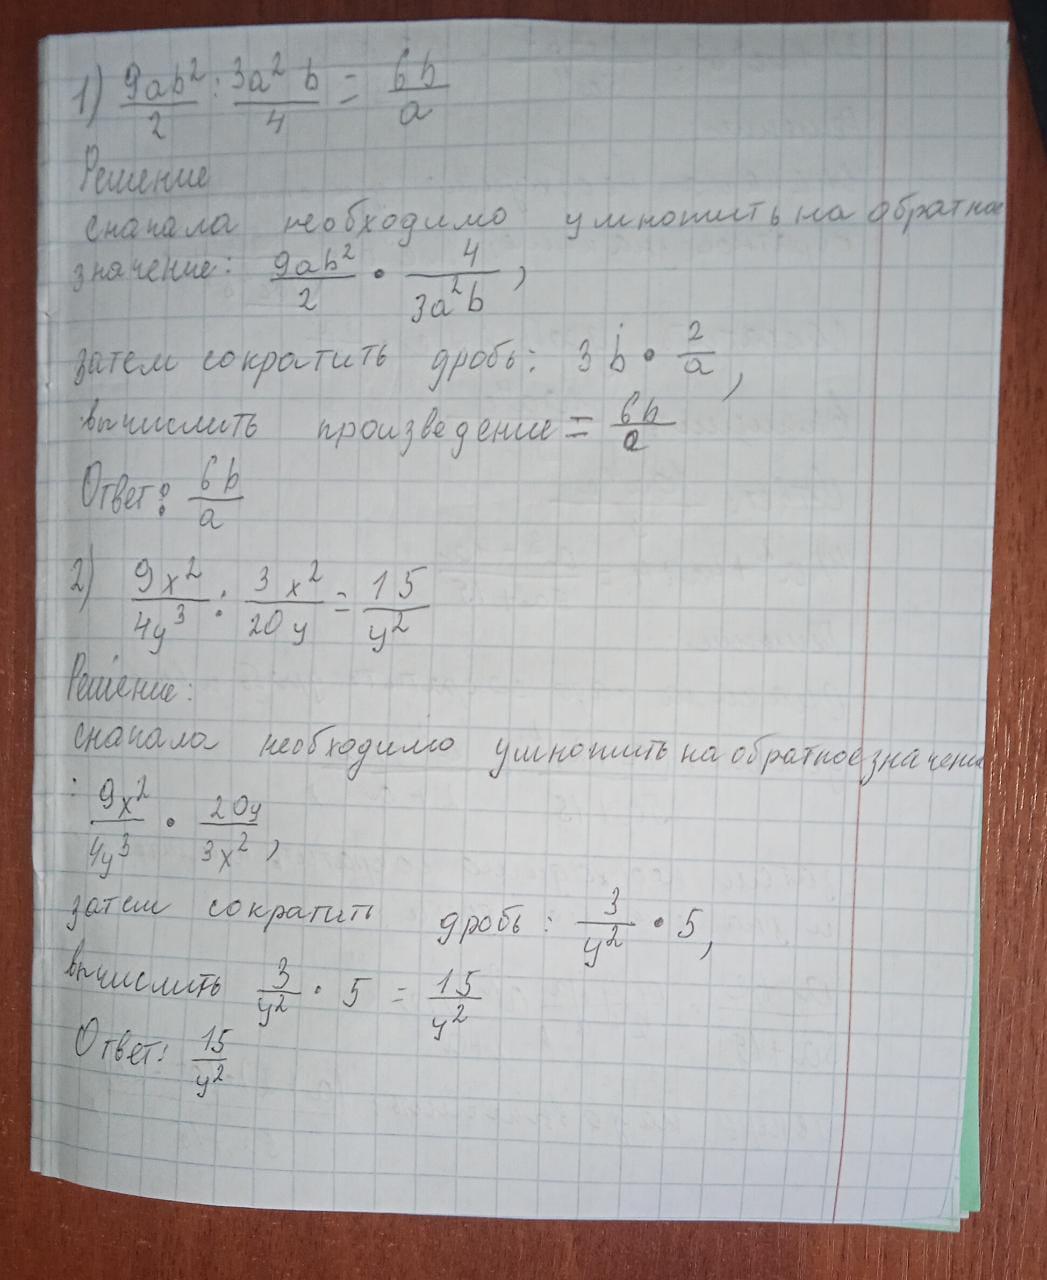 1) 9ab²/2 : 3a²b/4 = 6b/a
Решение
сначала необходимо умножить на обратное
значение: 9ab²/2 • 4/3a²b,
затем сократить дробь: 3b • 2/a,
вычислить произведение = 6b/a
Ответ: 6b/a
2) 9x²/4y³ : 3x²/20y = 15/y²
Решение:
сначала необходимо умножить на обратное значение
: 9x²/4y³ • 20y/3x²,
затем сократить дробь: 3/y² • 5,
вычислить 3/y² • 5 = 15/y²
Ответ: 15/y²